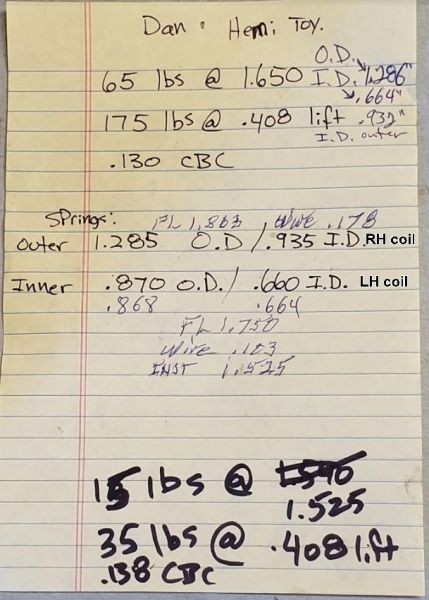 Dan · Hemi Toy.
O.D.
65 lbs @ 1.650 I.D. 1.286"
.664"
175 lbs @ .408 lift .932"
I.D. outer
.130 CBC
Springs: FL 1.863, Wire .178
Outer 1.285 O.D / .935 I.D. RH coil
Inner .870 O.D. / .660 I.D. LH coil
.868 .664
FL 1.750
Wire .103
INST 1.525
15 lbs @ 1.590
1.525
35 lbs @ .408 lift
.138 CBC